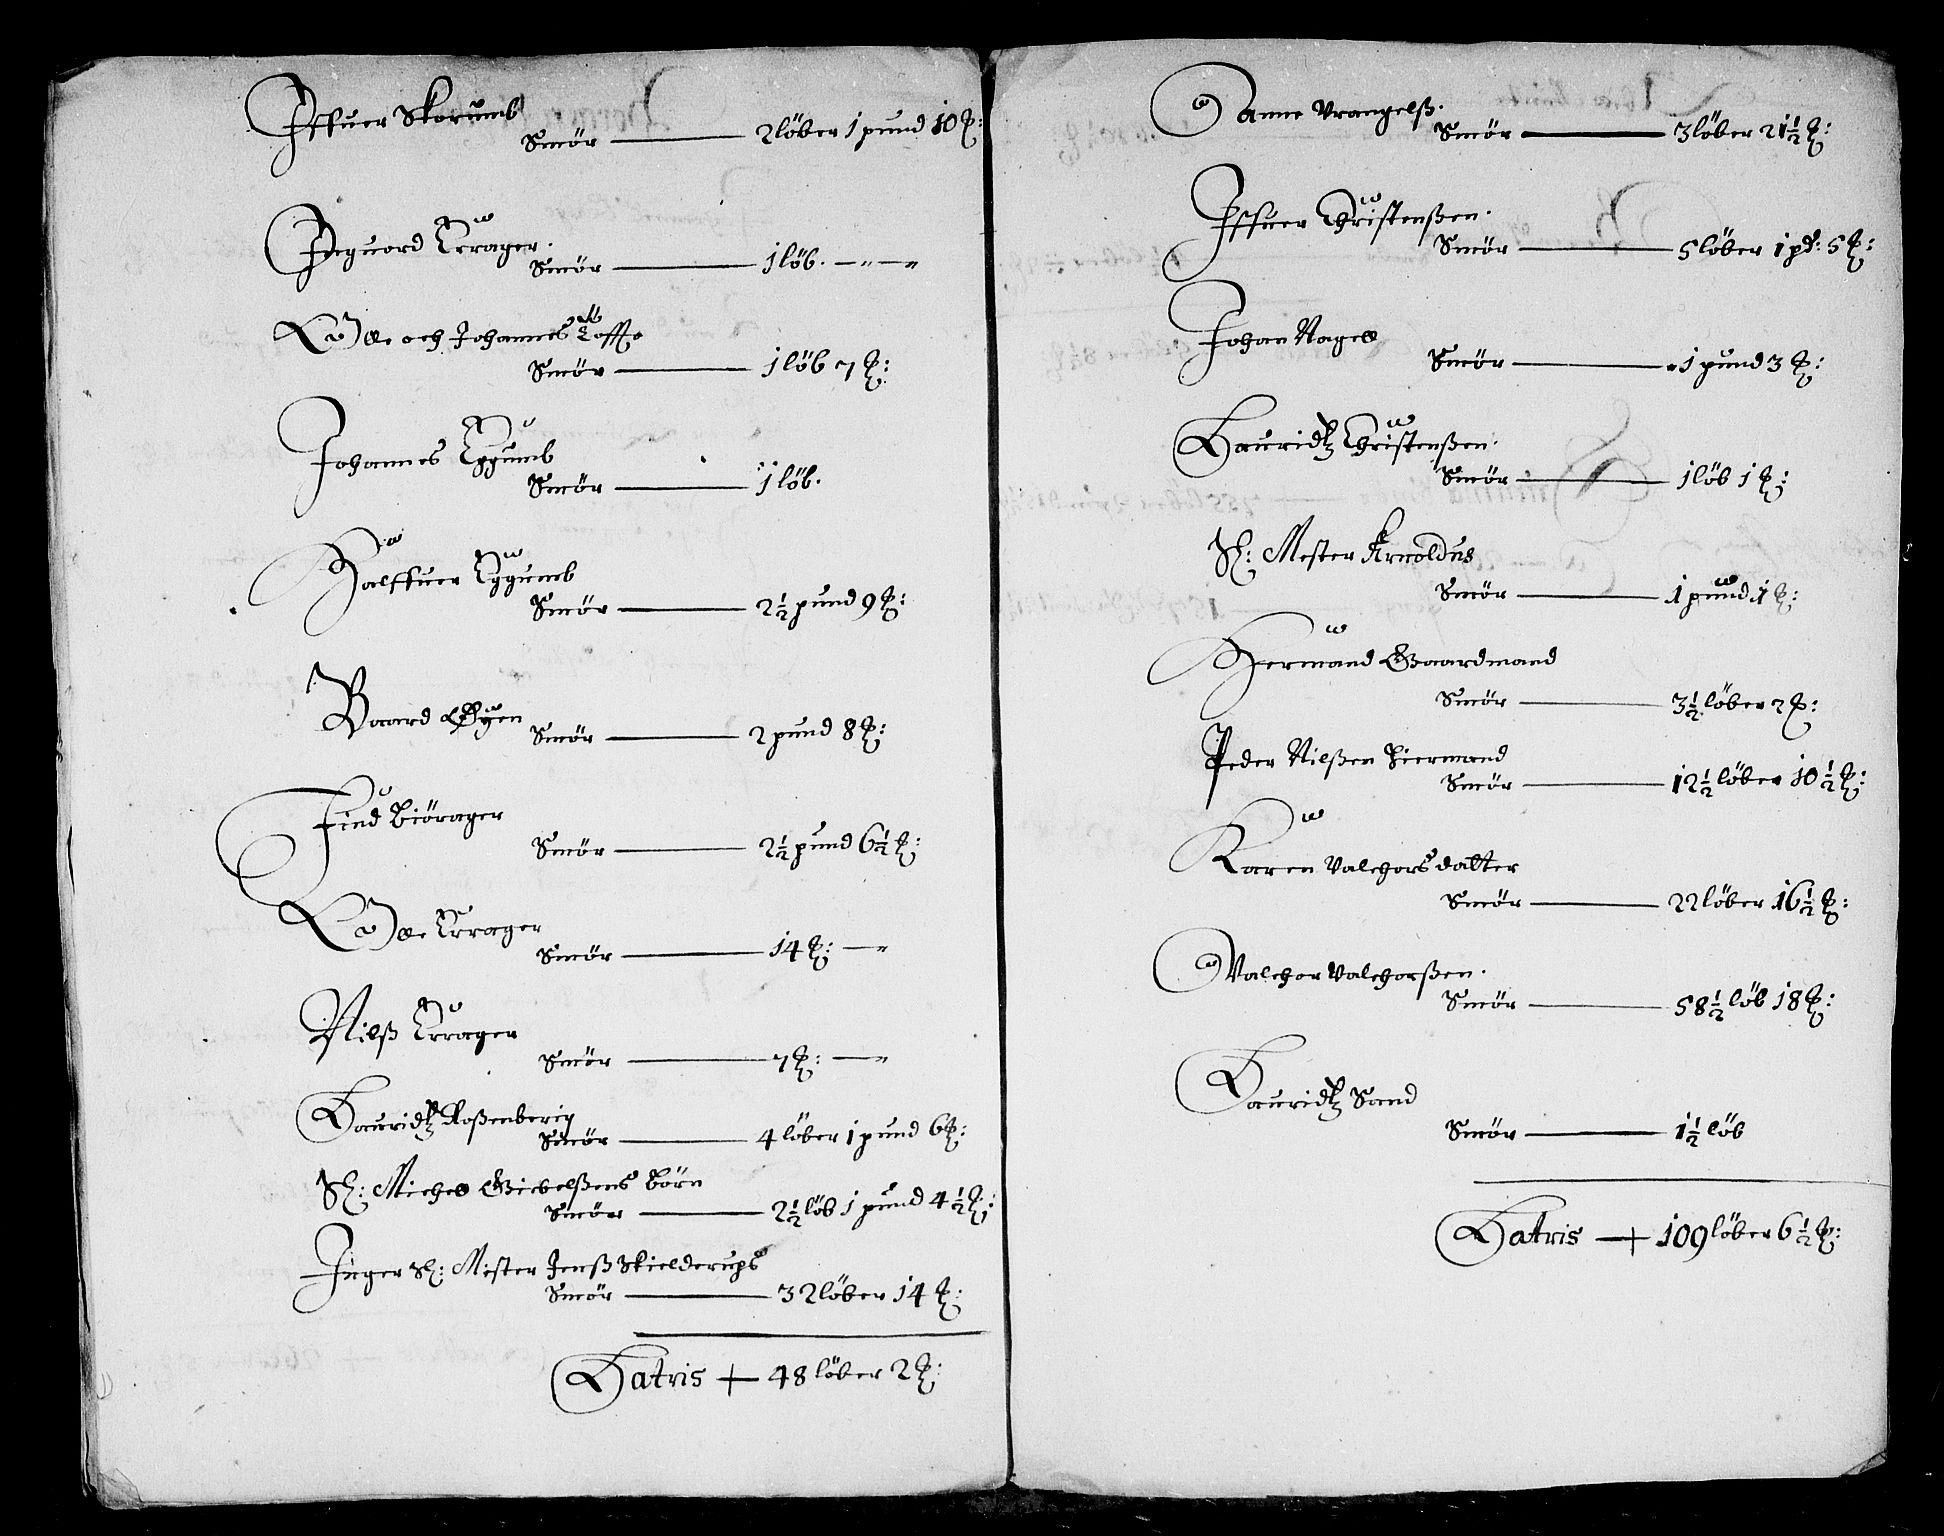 Iffuer Skorumb
Smör 2 löber 1 pund 10 ℔:
Inguord Errager.
Smör 1 löb. — " — "
Olle och Johannes Toffte
Smör 1 löb 7 ℔:
Johannes Eggumb
Smör 1 löb.
Halffuer Eggumb
Smör 2½ pund 9 ℔:
Baard Øyen
Smör 2 pund 8 ℔:
Find Biörager
Smör 2½ pund 6½ ℔:
Olle Errager
Smör 14 ℔: — "
Nilß Errager
Smör 7 ℔: — "
Lauridtz Roßenberig
Smör 4 löber 1 pund 6 ℔:
Sl: Michel Giebelßens Börn
Smör 2½ löb 1 pund 4½ ℔:
Inger Sl: Mester Jenß Skielderups
Smör 32 löber 14 ℔:
Latris + 48 löber 2 ℔:
Anne Vrangelß.
Smör 3 löber 21½ ℔:
Iffuer Christenßen.
Smör 5 löber 1 pd: 5 ℔:
Johan Nagel
Smör 1 pund 3 ℔:
Lauridtz Christenßen.
Smör 1 löb 1 ℔:
Sl: Mester Arnoldus
Smör 1 pund 1 ℔:
Hermand Gaardmand
Smör 3½ löber 2 ℔:
Peder Nilßen Hiermand
Smör 12½ löber 10½ ℔:
Karen Valchors datter
Smör 22 löber 16½ ℔:
Valchor Valchorßen.
Smör 58½ löb 18 ℔:
Lauridtz Sand
Smör 1½ löb
Latris + 109 löber 6½ ℔: